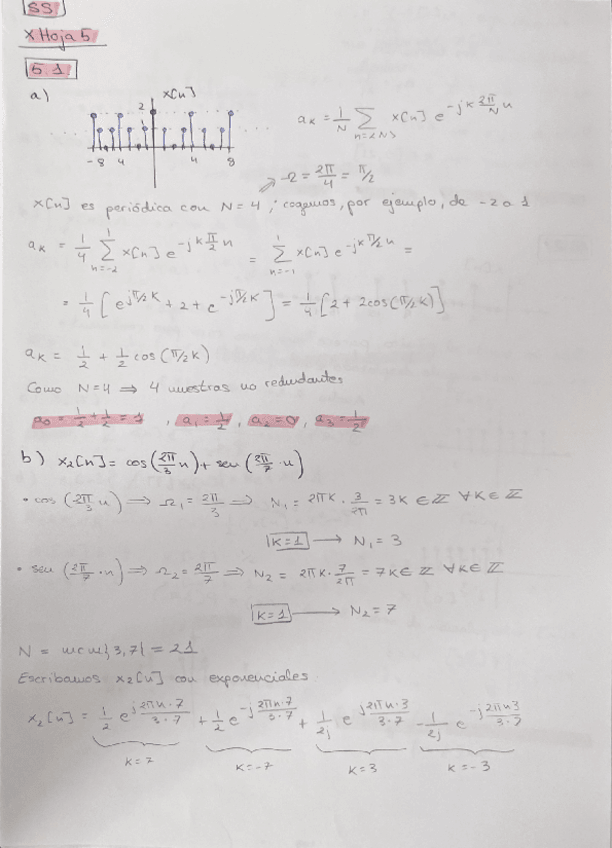 SS
x Hoja 5
5.1
a)
x[n]
2
1
-8 4 4 8
a_k = 1/N Σ_{n=<N>} x[n] e^{-jk 2π/N n}
Ω = 2π/4 = π/2
x[n] es periódica con N=4; cogemos, por ejemplo, de -2 a 1
a_k = 1/4 Σ_{n=-2}^{1} x[n] e^{-jk π/2 n} = Σ_{n=-1}^{1} x[n] e^{-jk π/2 n} =
= 1/4 [e^{jπ/2 k} + 2 + e^{-jπ/2 k}] = 1/4 [2 + 2cos(π/2 k)]
a_k = 1/2 + 1/2 cos(π/2 k)
Como N=4 ⟹ 4 muestras no redundantes
a_0 = 1/2 + 1/2 = 1 , a_1 = 1/2 , a_2 = 0 , a_3 = 1/2
b) x_2[n] = cos(2π/3 n) + sen(2π/7 · n)
• cos(2π/3 n) ⟹ Ω_1 = 2π/3 ⟹ N_1 = 2πk · 3/2π = 3k ∈ Z ∀k ∈ Z
k=1 → N_1 = 3
• sen(2π/7 · n) ⟹ Ω_2 = 2π/7 ⟹ N_2 = 2πk · 7/2π = 7k ∈ Z ∀k ∈ Z
k=1 → N_2 = 7
N = mcm{3,7} = 21
Escribamos x_2[n] con exponenciales
x_2[n] = 1/2 e^{j 2πn·7/3·7} + 1/2 e^{-j 2πn·7/3·7} + 1/2j e^{j 2πn·3/3·7} - 1/2j e^{-j 2πn3/3·7}
k=7 k=-7 k=3 k=-3